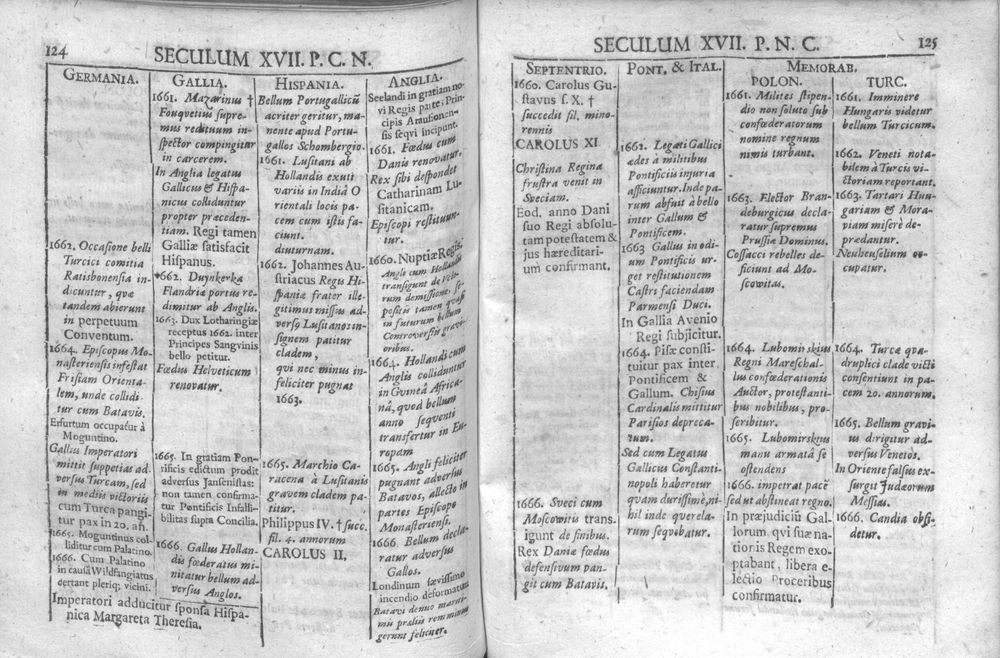 124
SECULUM XVII. P. C. N.
GERMANIA.
1663. Occasione belli
Turcici comitia
Ratisbonensia in-
dicuntur, quæ
tandem abierunt
in perpetuum
Conventum.
1664. Episcopus Mo-
nasteriensis infestat
Frisiam Orienta-
lem, unde collidi-
tur cum Batavis.
Erfurtum occupatur à
Moguntino.
Gallus Imperatori
mittit suppetias ad-
versus Turcam, sed
in mediis victoriis
cum Turca pangi-
tur pax in 20. an.
1665. Moguntinus col-
liditur cum Palatino.
1666. Cum Palatino
in causâ Wildfangiatus
certant pleriq; vicini.
Imperatori adducitur sponsa Hispa-
nica Margareta Theresia.
GALLIA.
1661. Mazarinus †
Fouqvetius supre-
mus redituum in-
spector compingitur
in carcerem.
In Anglia legatus
Gallicus & Hispa-
nicus colliduntur
propter præceden-
tiam. Regi tamen
Galliæ satisfacit
Hispanus.
1662. Duynkerka
Flandriæ portus re-
dimitur ab Anglis.
1663. Dux Lotharingiæ
receptus 1662. inter
Principes Sangvinis
bello petitur.
Fœdus Helveticum
renovatur.
1665. In gratiam Pon-
tificis edictum prodit
adversus Jansenistas:
non tamen confirma-
tur Pontificis Infalli-
bilitas supra Concilia.
1666. Gallus Hollan-
dis fœderatus mi-
nitatur bellum ad-
versus Anglos.
HISPANIA.
Bellum Portugallicũ
acriter geritur, ma-
nente apud Portu-
gallos Schombergio.
1661. Lusitani ab
Hollandis exuti
variis in Indiâ O
rientali locis pa-
cem cum istis fa-
ciunt.
diuturnam.
1662. Johannes Au-
striacus Regis Hi-
spaniæ frater ille-
gitimus missus ad-
versq Lusitanos in-
signem patitur
cladem,
qvi nec minus in-
feliciter pugnat
1663.
1665. Marchio Ca-
racena à Lusitanis
gravem cladem pa-
titur.
Philippus IV. † succ.
fil. 4. annorum
CAROLUS II,
ANGLIA.
Seelandi in gratiam no-
vi Regis partes Prin-
cipis Arausionen-
sis seqvi incipiunt.
1661. Fœdus cum
Danis renovatur.
Rex sibi despondet
Catharinam Lu-
sitanicam.
Episcopi restituun-
tur.
1660. Nuptiæ Regis.
Anglo cum Hollandis
transigunt de
rum demissione
positis tamen quasi
in futurum bellum
Controversiis gravi-
oribus.
1664. Hollandi cum
Anglis colliduntur
in Gvineâ Africa-
nâ, qvod bellum
anno seqventi
transfertur in Eu-
ropam
1665. Angli feliciter
pugnant adversus
Batavos, allecto in
partes Episcopo
Monasteriensi.
1666 Bellum decla-
ratur adversus
Gallos.
Londinum sævissimo
incendio deformatur
Batavi denuo mariti-
mis præliis rem minus
gerunt feliciter.
SECULUM XVII. P. N. C.
125
SEPTENTRIO.
1660. Carolus Gu-
stavus s. X. †
succedit fil. mino-
rennis
CAROLUS XI.
Christina Regina
frustra venit in
Sveciam.
Eod. anno Dani
suo Regi absolu-
tam potestatem &
jus hæreditari-
um confirmant.
1666. Sveci cum
Moscowitis trans-
igunt de finibus.
Rex Daniæ fœdus
defensivum pan-
git cum Batavis.
PONT. & ITAL.
1662. Legati Gallici
ædes à militibus
Pontificiis injuria
afficiuntur. Inde pa-
rum abfuit à bello
inter Gallum &
Pontificem.
1663 Gallus in odi-
um Pontificis ur-
get restitutionem
Castri faciendam
Parmensi Duci.
In Gallia Avenio
Regi subjicitur.
1664. Pisæ consti-
tuitur pax inter
Pontificem &
Gallum. Chisius
Cardinalis mittitur
Parisios depreca-
tum.
Sed cum Legatus
Gallicus Constanti-
nopoli haberetur
qvam durissimè, ni-
hil inde qverela-
rum seqvebatur.
MEMORAB.
POLON.
1661. Milites stipen-
dio non soluto sub
confœderatorum
nomine regnum
nimis turbant.
1663. Elector Bran-
deburgicus decla-
ratur supremus
Prussiæ Dominus.
Cossacci rebelles de-
ficiunt ad Mo-
scowitas.
1664. Lubomirskius
Regni Mareschal-
lus confœderationis
Auctor, protestanti-
bus nobilibus, pro-
scribitur.
1665. Lubomirskius
manu armatâ se
ostendens
1666. imperat pacẽ
sed ut abstineat regno.
In præjudiciũ Gal-
lorum qvi suæ na-
tionis Regem exo-
ptabant, libera e-
lectio Proceribus
confirmatur.
TURC.
1661. Imminere
Hungaris videtur
bellum Turcicum.
1662. Veneti nota-
bilem à Turcis vi-
ctoriam reportant.
1663. Tartari Hun-
gariam & Mora-
viam miserè de-
prædantur.
Neuheuselium oc-
cupatur.
1664. Turcæ qva-
druplici clade victi
consentiunt in pa-
cem 20. annorum.
1665. Bellum gravi-
us dirigitur ad-
versus Venetos.
In Oriente falsus ex-
surgit Judæorum
Messias.
1666. Candia obsi-
detur.